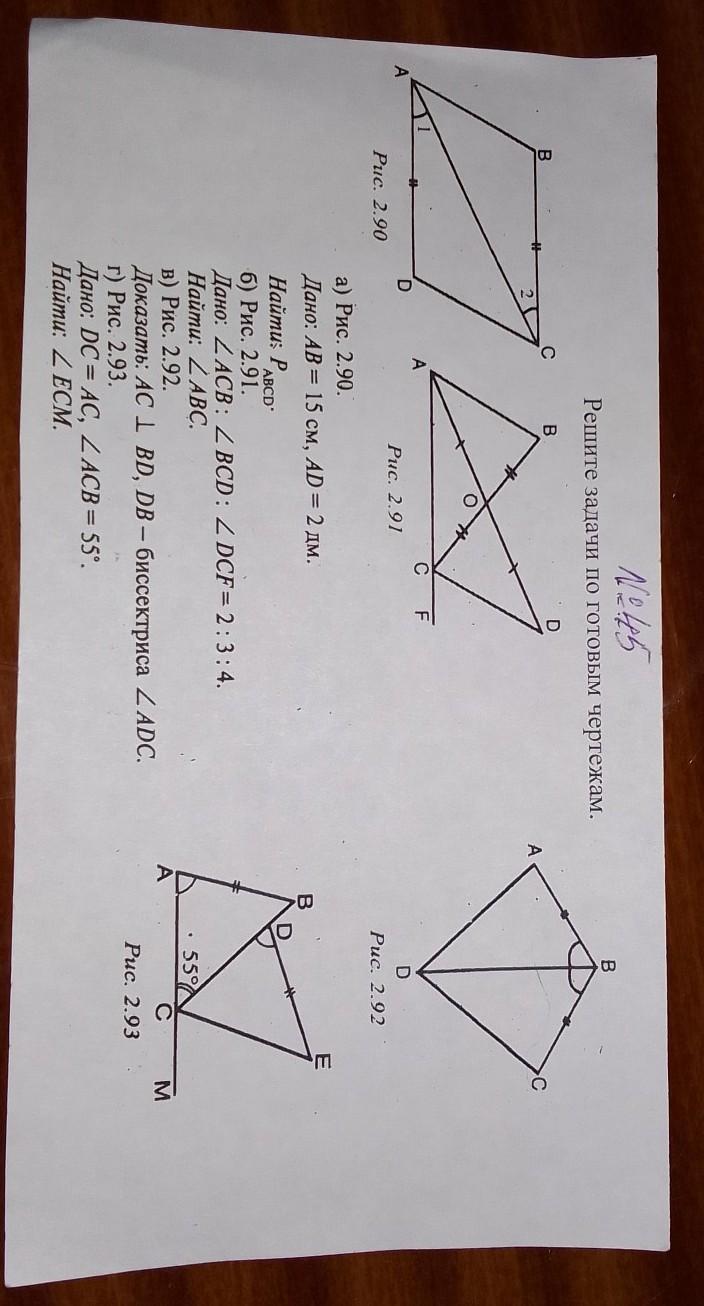 №45
Решите задачи по готовым чертежам.
B
C
2
1
A
D
Рис. 2.90
B
D
O
A
C
F
Рис. 2.91
B
A
C
D
Рис. 2.92
а) Рис. 2.90.
Дано: AB = 15 см, AD = 2 дм.
Найти: P ABCD.
б) Рис. 2.91.
Дано: ∠ACB : ∠BCD : ∠DCF = 2 : 3 : 4.
Найти: ∠ABC.
в) Рис. 2.92.
Доказать: AC ⊥ BD, DB – биссектриса ∠ADC.
г) Рис. 2.93.
Дано: DC = AC, ∠ACB = 55°.
Найти: ∠ECM.
B
D
E
55°
A
C
M
Рис. 2.93